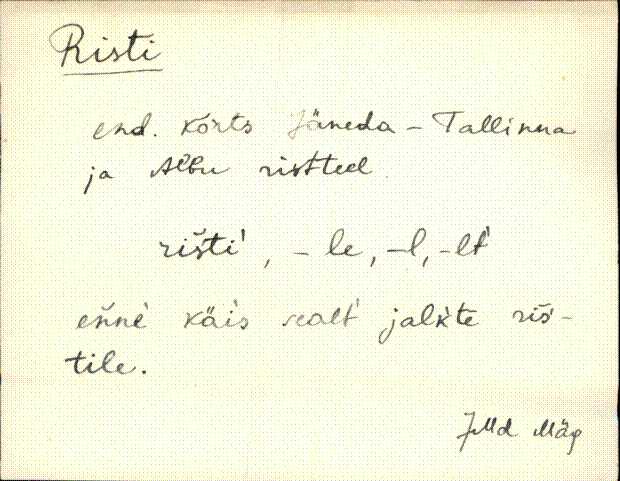 Risti
end. kõrts Jäneda – Tallinna
ja Albu ristteel
rišti̇̀, – le, –l, –lt̀
eňnè käis sealt̀ jalk̀te riš-
tile.
JMd Mäg